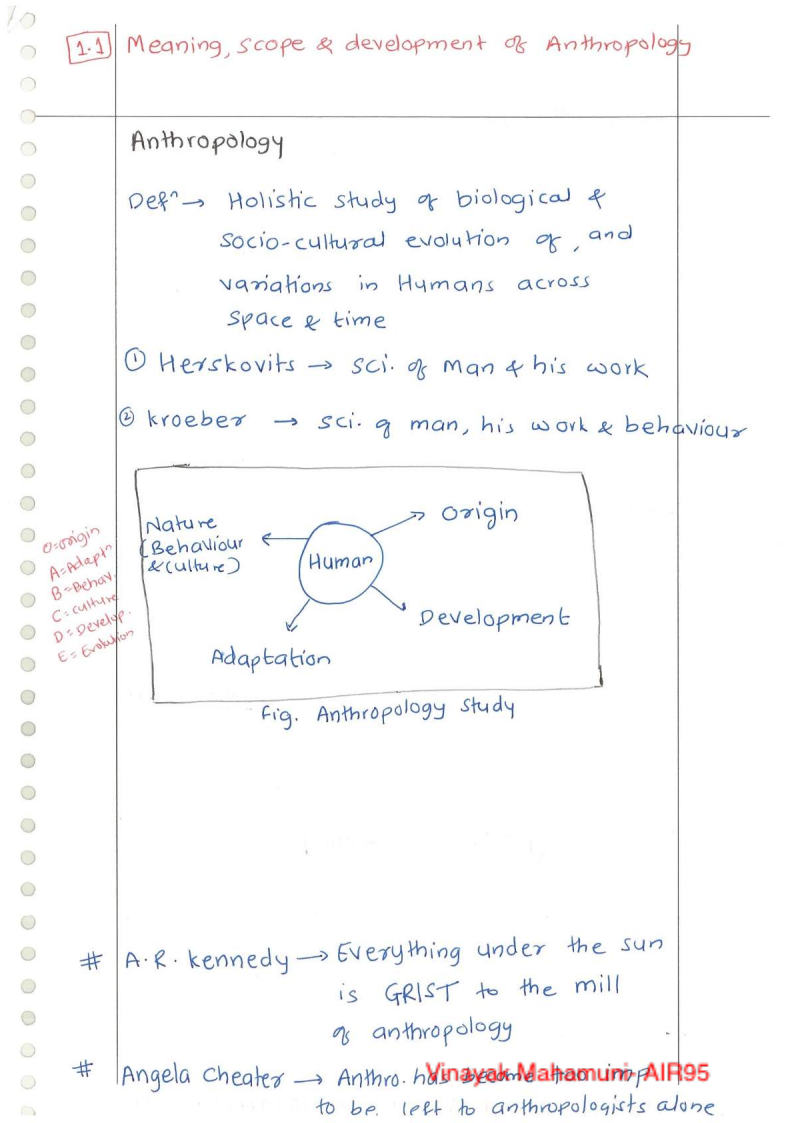 1.1 Meaning, scope & development of Anthropology
Anthropology
Defⁿ → Holistic study of biological &
socio-cultural evolution of, and
variations in Humans across
space & time
① Herskovits → sci. of man & his work
② kroeber → sci. of man, his work & behaviour
Nature
(Behaviour
& culture)
Human
Origin
Development
Adaptation
Fig. Anthropology study
O=origin
A=Adaptⁿ
B=Behav.
C=culture
D=Develop.
E=Evolution
# A.R. kennedy → Everything under the sun
is GRIST to the mill
of anthropology
# Angela Cheater → Anthro. has become too imp
to be left to anthropologists alone
Vinayak Mahamuni-AIR95